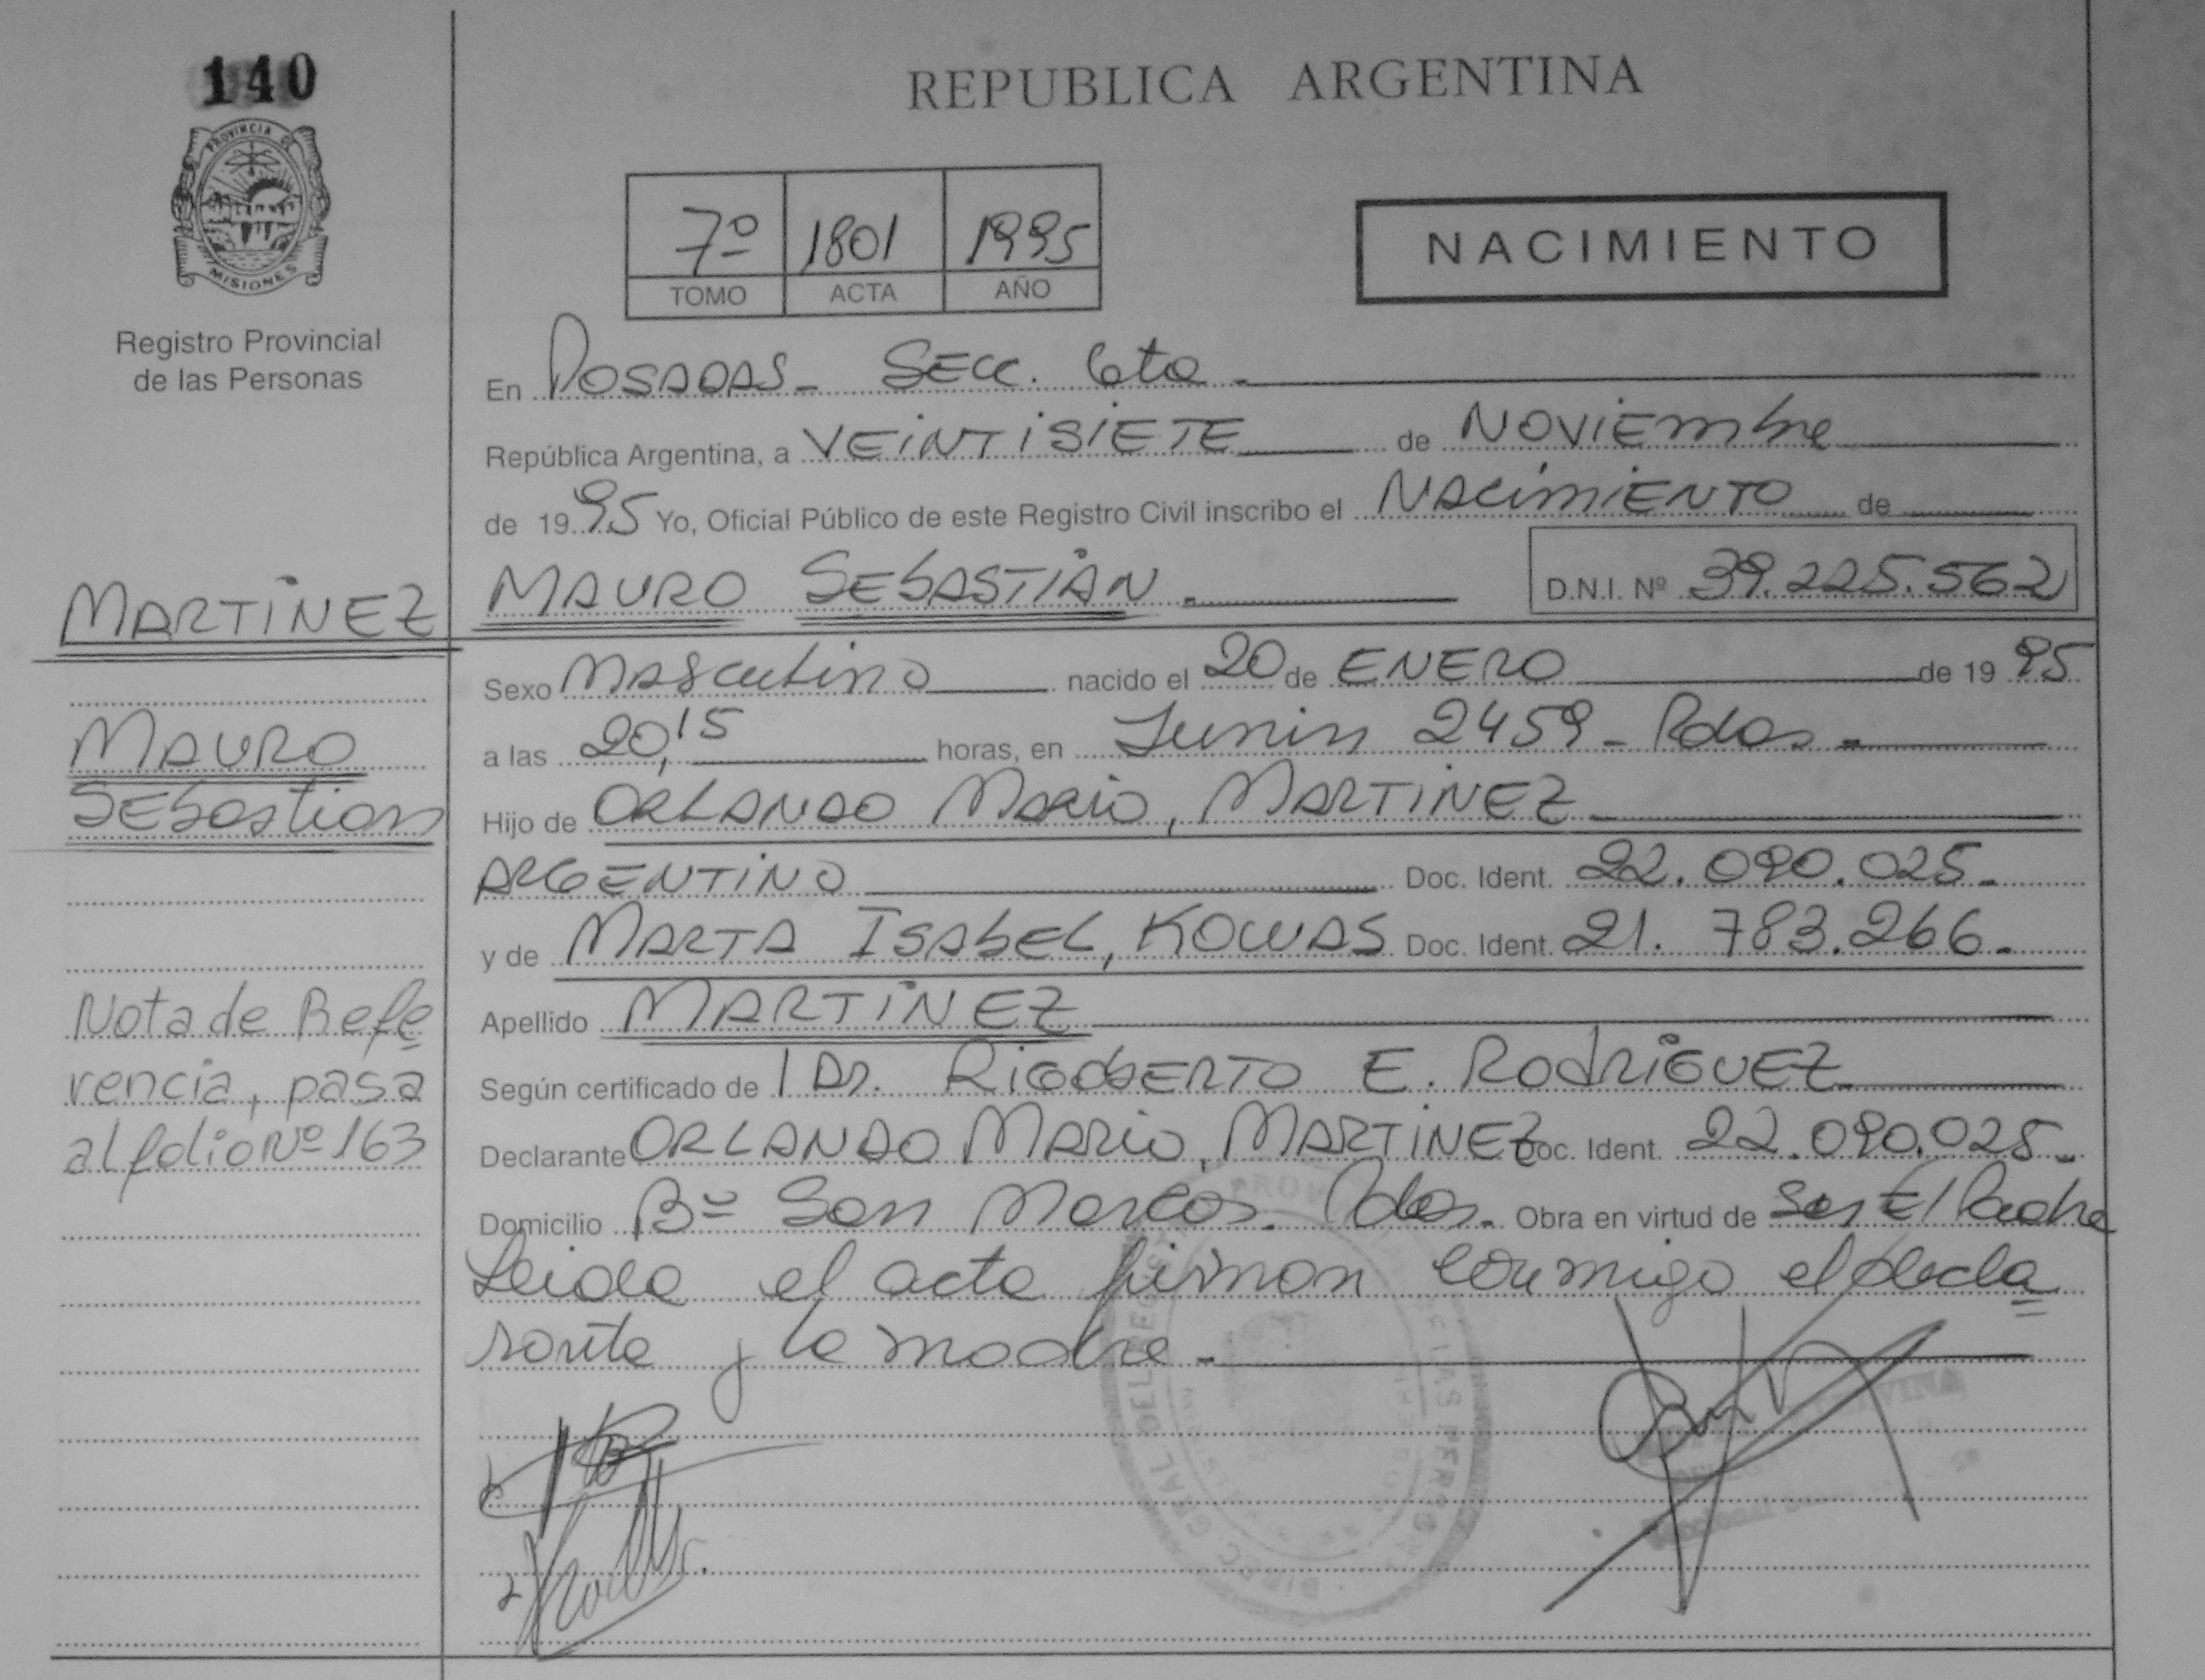 140
REPUBLICA ARGENTINA
PROVINCIA DE
MISIONES
Registro Provincial
de las Personas
7º 1801 1995
TOMO ACTA AÑO
NACIMIENTO
En POSADAS - SECC. 6ta -
República Argentina, a VEINTISIETE de NOVIEMbre
de 1995 Yo, Oficial Público de este Registro Civil inscribo el NACIMIENTO de
MAURO SEBASTIAN - D.N.I. Nº 39.225.562
Sexo Masculino nacido el 20 de ENERO de 1995
a las 20,15 horas, en Junin 2459 - Pdas -
Hijo de ORLANDO MARIO, MARTINEZ
ARGENTINO Doc. Ident. 22.090.025-
y de MARTA ISABEL, KOWAS Doc. Ident. 21.783.266-
Apellido MARTINEZ
Según certificado de l Dr. RIGOBERTO E. RODRIGUEZ
Declarante ORLANDO MARIO, MARTINEZ Doc. Ident. 22.090.025-
Domicilio Bº San Marcos. Pdas. Obra en virtud de Ser El Padre
Leida el acta firman conmigo el decla
rante y la madre -
MARTINEZ
MAURO
SEbastian
Nota de Refe
rencia, pasa
al folio Nº 163